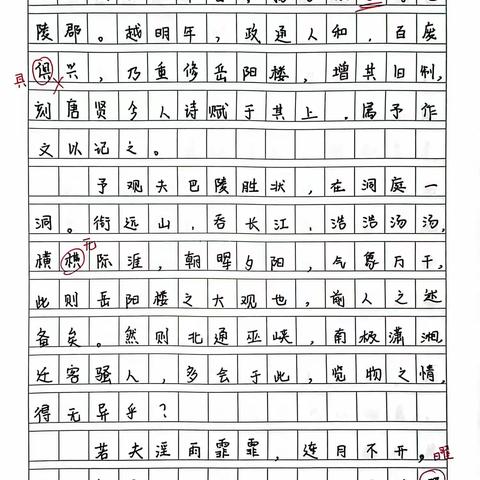 陵郡。越明年，政通人和，百废
具
俱兴，乃重修岳阳楼，增其旧制，
刻唐贤今人诗赋于其上，属予作
文以记之。
予观夫巴陵胜状，在洞庭一
洞。衔远山，吞长江，浩浩汤汤，
无
横横际涯，朝晖夕阳，气象万千，
此则岳阳楼之大观也，前人之述
备矣。然则北通巫峡，南极潇湘
迁客骚人，多会于此，览物之情，
得无异乎？
若夫淫雨霏霏，连月不开，
曜